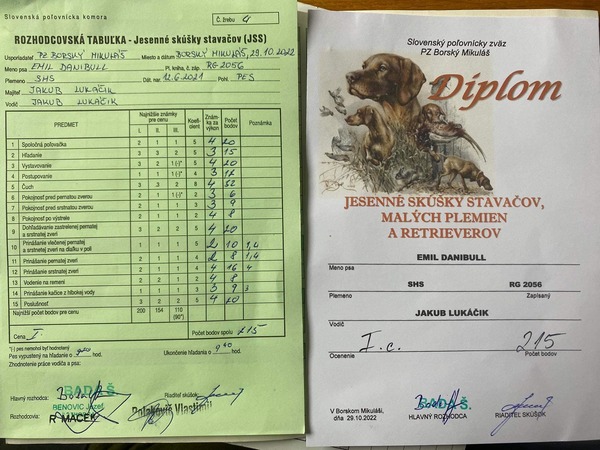 Slovenská poľovnícka komora
Č. žrebu 4
ROZHODCOVSKÁ TABUĽKA - Jesenné skúšky stavačov (JSS)
Usporiadateľ PZ BORSKÝ MIKULÁŠ v BORSKÝ MIKULÁŠ, 29.10.2022
Meno psa EMIL DANIBULL Pl. kniha, č. záp. RG 2056
Plemeno SHS Dát. nar. 12.6.2021 Pohl. PES
Majiteľ JAKUB LUKÁČIK
Vodič JAKUB LUKÁČIK
PREDMET Najnižšie známky pre cenu I. II. III. Koeficient Známka za výkon Počet bodov Poznámka
1 Spoločná poľovačka 2 1 1 5 4 20
2 Hľadanie 3 2 1(-)* 5 3 15
3 Vystavovanie 3 2 1(-)* 5 4 20
4 Postupovanie 2 1 1(-)* 4 3 12
5 Čuch 3 3 2 8 4 32
6 Pokojnosť pred pernatou zverou 2 1 1(-)* 2 3 6
7 Pokojnosť pred srstnatou zverou 2 1 1 3 3 9
8 Pokojnosť po výstrele 2 1 1 2 4 8
9 Dohľadávanie zastrelenej pernatej a srstnatej zveri 3 2 1 5 4 20
10 Prinášanie vlečenej pernatej a srstnatej zveri na diaľku v poli 2 1 1 5 2 10 1,4
11 Prinášanie pernatej zveri 2 1 1 4 2 8 1,4
12 Prinášanie srstnatej zveri 2 1 1 4 4 16 4
13 Vodenie na remeni 2 1 1 2 4 8
14 Prinášanie kačice z hlbokej vody 2 1 1 3 3 9 3
15 Poslušnosť 3 2 2 5 4 20
Najnižší počet bodov pre cenu 200 154 110 (90*)
Cena I. Počet bodov spolu 215
*) pes nemohol byť hodnotený
Pes vypustený na hľadanie o hod. Ukončenie hľadania o 9 40 hod.
Zhodnotenie práce vodiča a psa:
BADA Š.
Hlavný rozhodca: Riaditeľ skúšok:
BENOVIC Jozef
Rozhodcovia: R MACEK Polakovič Vlastimil
Slovenský poľovnícky zväz
PZ Borský Mikuláš
Diplom
JESENNÉ SKÚŠKY STAVAČOV,
MALÝCH PLEMIEN
A RETRIEVEROV
EMIL DANIBULL
Meno psa
SHS RG 2056
Plemeno Zapísaný
JAKUB LUKÁČIK
Vodič
I.c. 215
Ocenenie Počet bodov
BADA Š.
V Borskom Mikuláši, HLAVNÝ ROZHODCA RIADITEĽ SKÚŠOK
dňa 29.10.2022